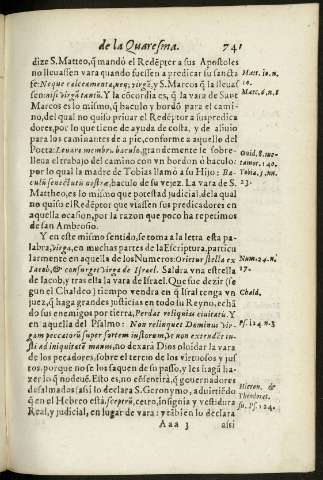 de la Quaresima. 741
dize S. Matteo, q̃ mandó el Redẽptor a sus Apostoles
no lleuassen vara quando fuessen a predicar su sancta
Matt. 10. n.
10.
fe: Neque calceamenta, neq; virgã, y S. Marcos q̃ la lleua
Marc. 6. n. 8
sen: nisi virgã tantũ. Y la cõcordia es, q̃ la vara de Sant
Marcos es lo mismo, q̃ baculo y bordõ para el cami-
no, del qual no quiso priuar el Redẽptor a sus predica
dores, por lo que tiene de ayuda de costa, y de aliuio
para los caminantes de a pie, conforme a aquello del
Poeta: Leuare membru baculo, grandemente se sobre-
Ouid. 8. me-
lleua el trabajo del camino con vn bordon ò baculo:
tamor. 140.
por lo qual la madre de Tobias llamó a su Hijo: Ba-
Tobia. 5. nu.
culũ senectutis nostræ, baculo de su vejez. La vara de S.
23.
Mattheo, es lo mismo que potestad judicial, dela qual
no quiso el Redẽptor que vsassen sus predicadores en
aquella ocasion, por la razon que poco ha repetimos
de san Ambrosio.
Y en este mismo sentido, se toma a la letra esta pa-
labra, virga, en muchas partes de la Escriptura, particu
larmente en aquella de los Numeros: Orietur stella ex
Num. 24. n.
Iacob, & consurget virga de Israel. Saldra vna estrella
17.
de Iacob, y tras ella la vara de Israel. Que fue dezir (se
gun el Chaldeo) tiempo vendra en q̃ Isrãl tenga vn
Chald.
juez, q̃ haga grandes justicias en todo su Reyno, echã
do sus enemigos por tierra, Perdat reliquias ciuitatũ. Y
en aquella del Psalmo: Non relinquet Dominus vir-
Ps. 124. n. 3
gam peccatorũ super sortem iustorum, vt non extendãt iu-
sti ad iniquitatẽ manus, no dexará Dios oluidar la vara
de los pecadores, sobre el tercio de los virtuosos y jus
tos, porque no se los saquen de su passo, y les hagã ha-
zer lo q̃ no deuẽ. Esto es, no cõsentirá, q̃ gouernadores
desalmados (assi lo declara S. Geronymo, aduirtiẽdo
Hieron. &
q̃ en el Hebreo está, sceptrũ, cetro, insignia y vestidura
Theodoret.
Real, y judicial, en lugar de vara: y tãbiẽ lo declara
su. Ps. 124.
Aaa 3 assi